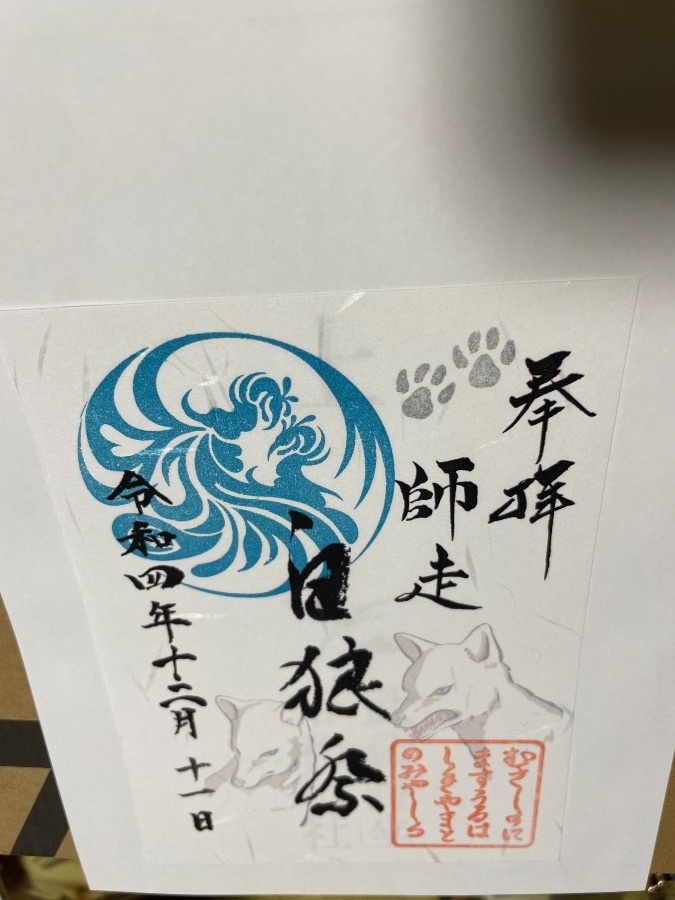 奉拝
師走
白狼祭
令和四年十二月十一日
むさしのに
ますうるは
しきやまと
のみやしろ